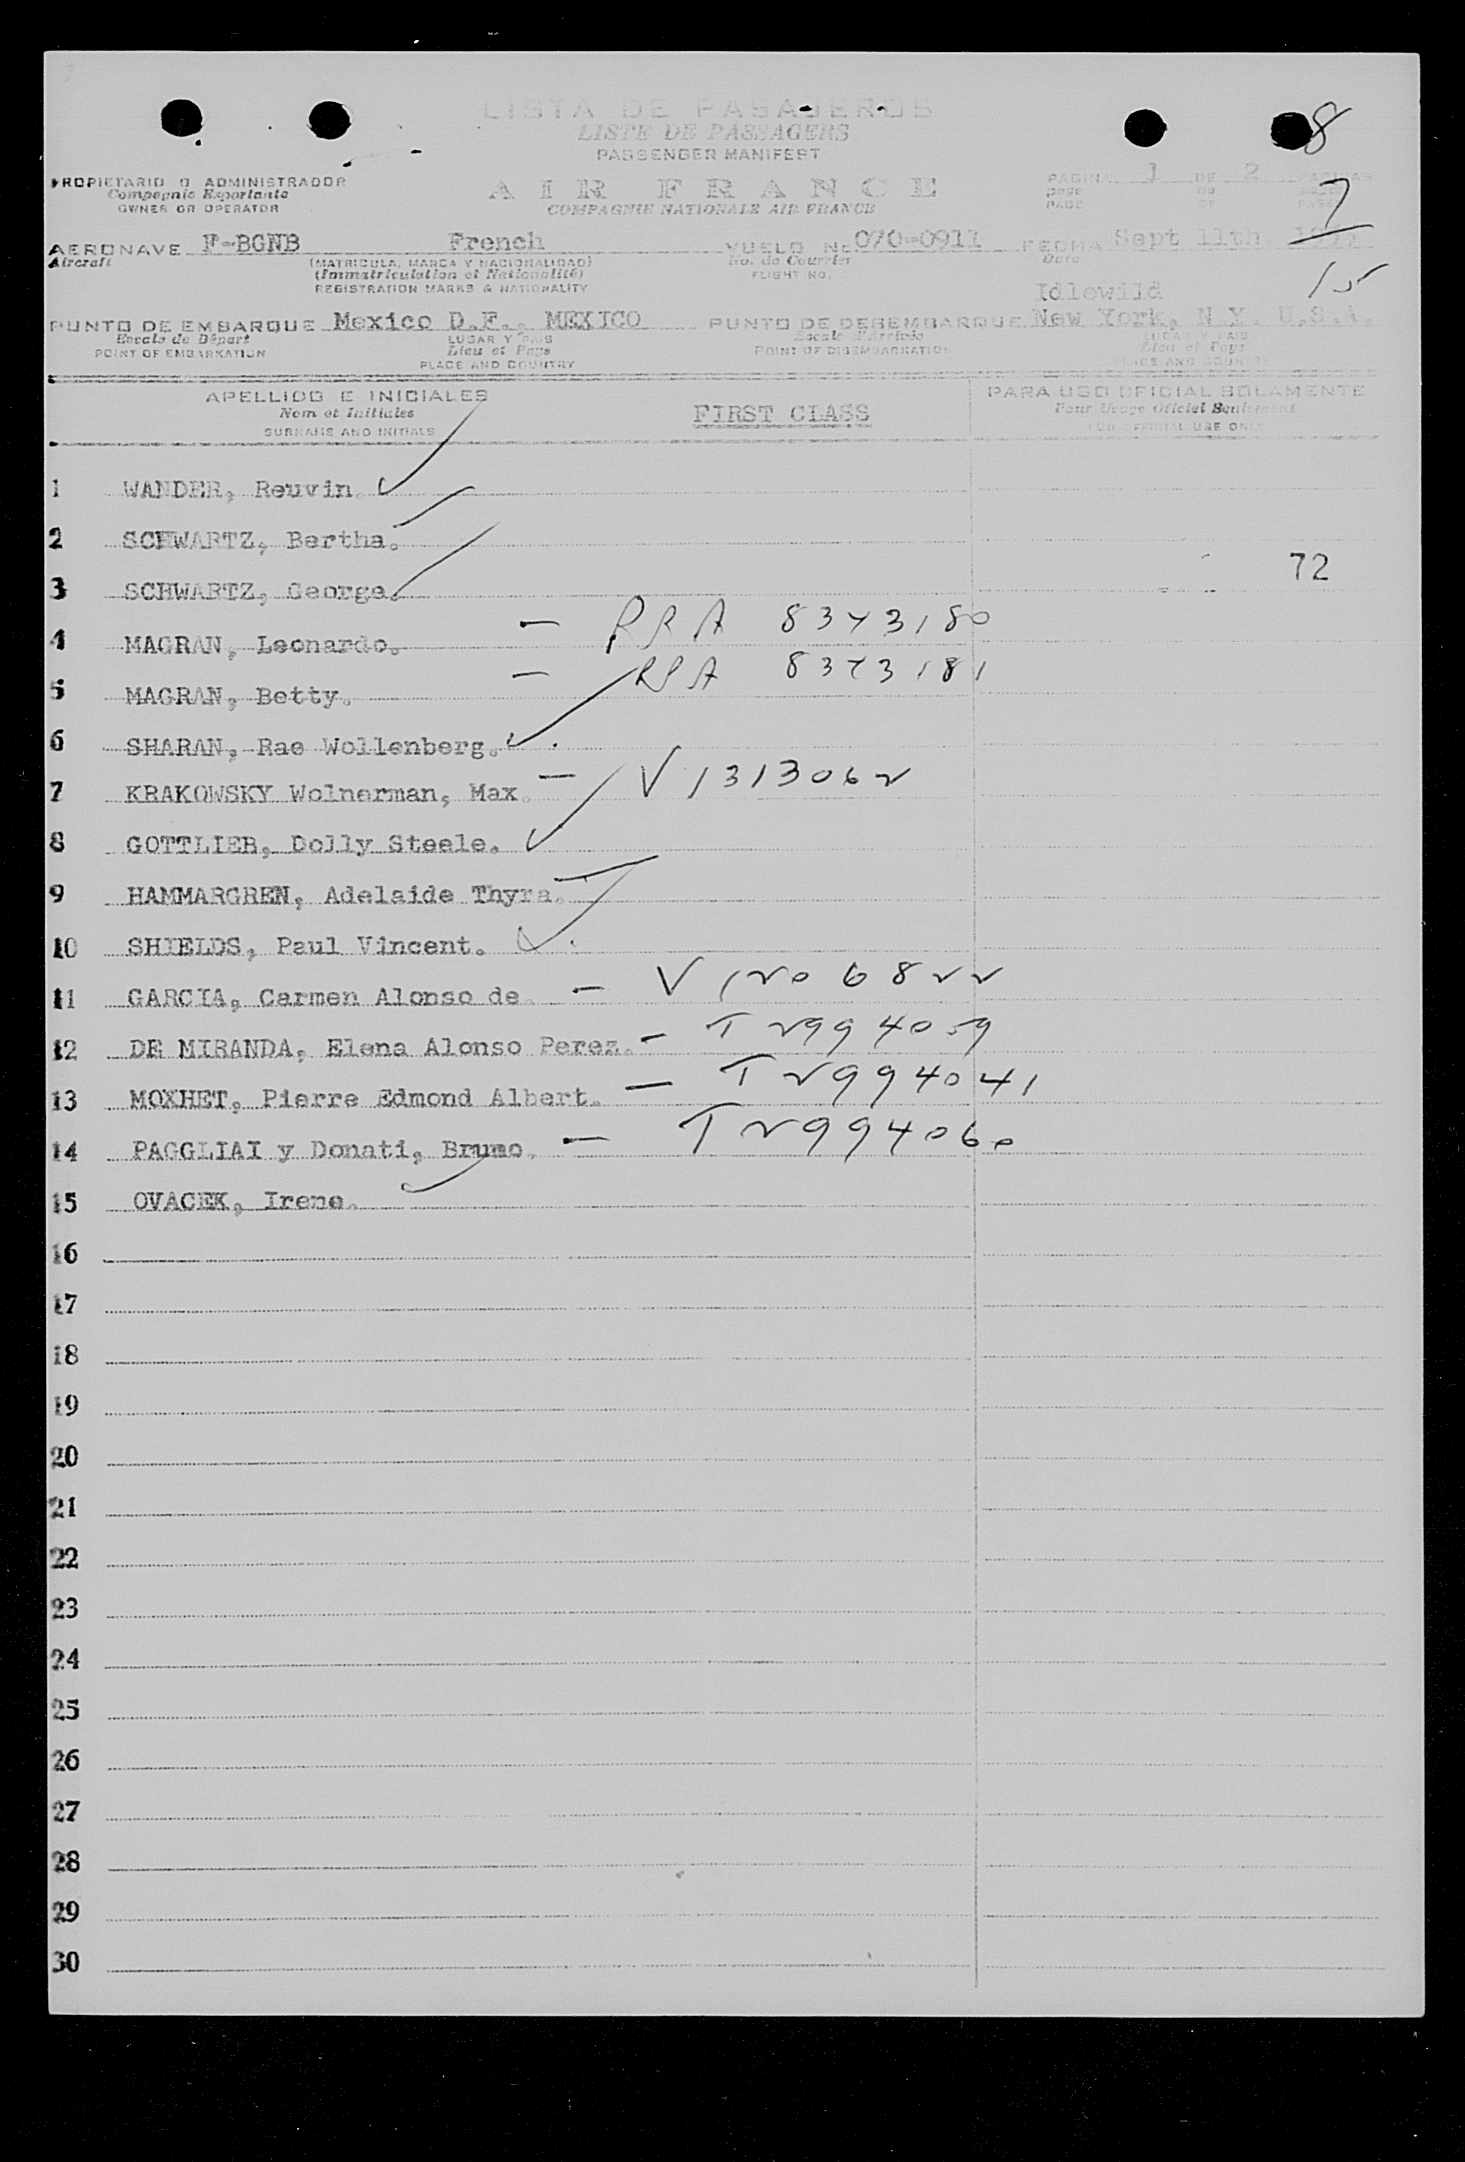 8
LISTA DE PASAJEROS
LISTE DE PASSAGERS
PASSENGER MANIFEST
PROPIETARIO O ADMINISTRADOR
Compagnie Exploitante
OWNER OR OPERATOR
AIR FRANCE
COMPAGNIE NATIONALE AIR FRANCE
PAGINA 1 DE 2 PAGINAS
page
PAGE OF
7
AERONAVE F-BGNB French VUELO No 070-0911 FECHA Sept 11th.
Aircraft (MATRICULA, MARCA Y NACIONALIDAD) No. de Courrier Date
(Immatriculation et Nationalité) FLIGHT NO.
REGISTRATION MARKS & NATIONALITY
15
Idlewild
PUNTO DE EMBARQUE Mexico D.F., MEXICO PUNTO DE DESEMBARQUE New York, N.Y. U.S.A.
Escale de Départ LUGAR Y PAIS Escale d'Arrivée LUGAR Y PAIS
POINT OF EMBARKATION Lieu et Pays POINT OF DISEMBARKATION Lieu et Pays
PLACE AND COUNTRY PLACE AND COUNTRY
APELLIDO E INICIALES FIRST CLASS PARA USO OFICIAL SOLAMENTE
Nom et Initiales Pour Usage Officiel Seulement
SURNAME AND INITIALS FOR OFFICIAL USE ONLY
1 WANDER, Reuvin.
2 SCHWARTZ, Bertha.
72
3 SCHWARTZ, George.
4 MAGRAN, Leonardo. - RRA 8343180
5 MAGRAN, Betty. - RRA 8343181
6 SHARAN, Rae Wollenberg.
7 KRAKOWSKY Wolnerman, Max. - V1313062
8 GOTTLIEB, Dolly Steele.
9 HAMMARGREN, Adelaide Thyra.
10 SHIELDS, Paul Vincent.
11 GARCIA, Carmen Alonso de. - V1206822
12 DE MIRANDA, Elena Alonso Perez. - T2994059
13 MOXHET, Pierre Edmond Albert. - T2994041
14 PAGGLIAI y Donati, Bruno. - T2994060
15 OVACEK, Irene.
16
17
18
19
20
21
22
23
24
25
26
27
28
29
30